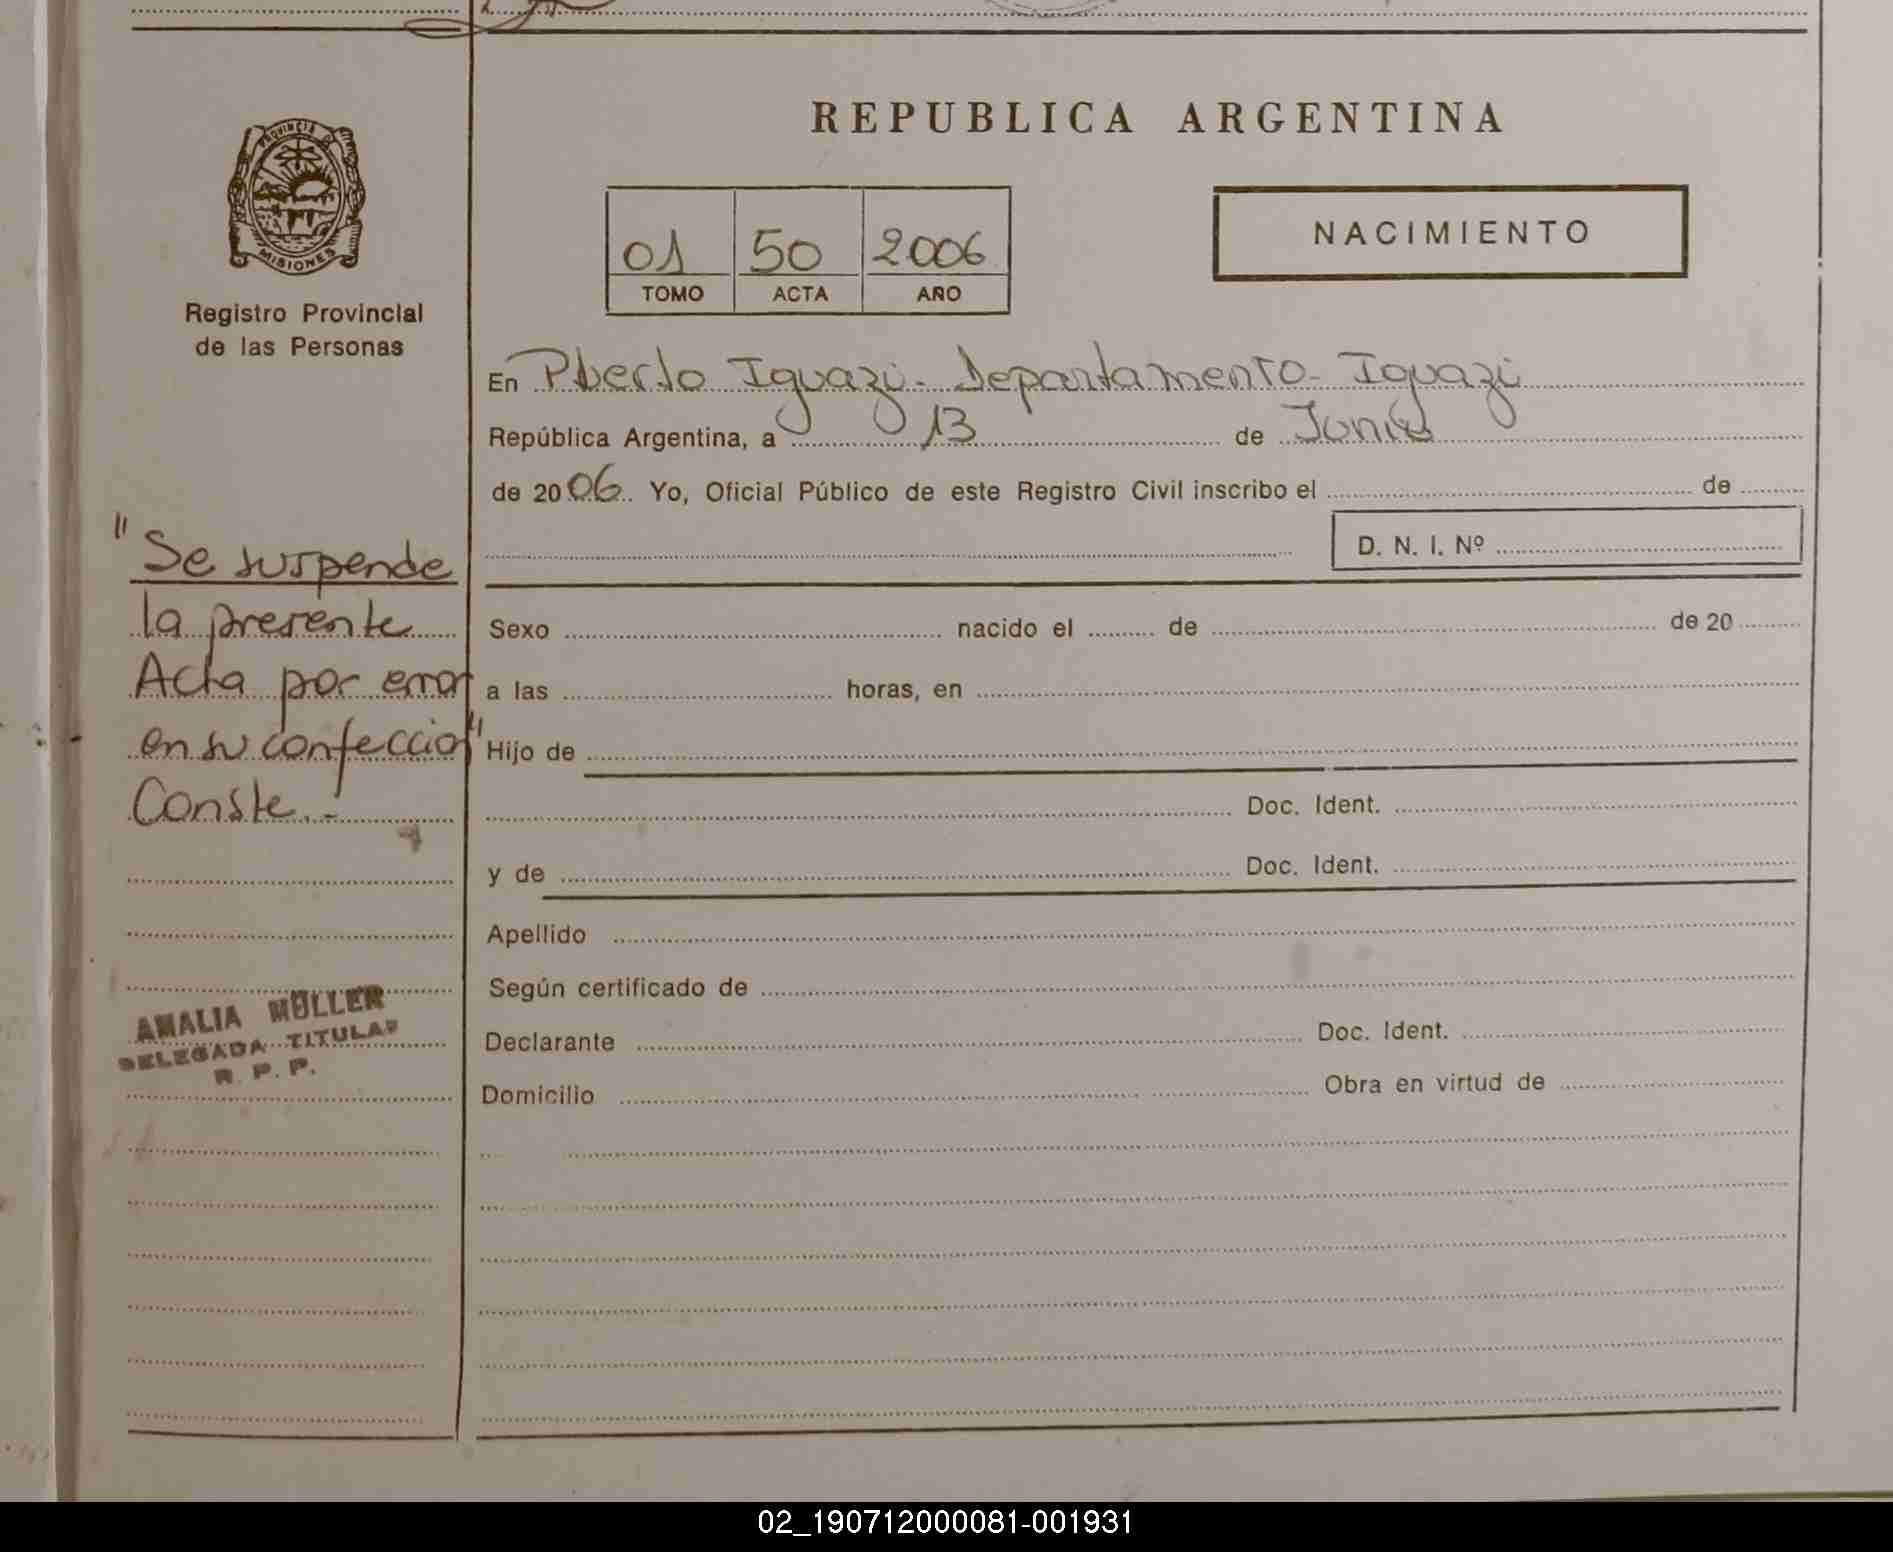 PROVINCIA DE
MISIONES
Registro Provincial
de las Personas
"Se suspende
la presente
Acta por error
en su confeccion"
Conste.-
AMALIA MÜLLER
DELEGADA TITULAR
R. P. P.
REPUBLICA ARGENTINA
01 50 2006
TOMO ACTA AÑO
NACIMIENTO
En Puerto Iguazú. Departamento - Iguazú
República Argentina, a 13 de Junio
de 2006. Yo, Oficial Público de este Registro Civil inscribo el de
D. N. I. Nº
Sexo nacido el de de 20
a las horas, en
Hijo de
Doc. Ident.
y de Doc. Ident.
Apellido
Según certificado de
Declarante Doc. Ident.
Domicilio Obra en virtud de
02_190712000081-001931